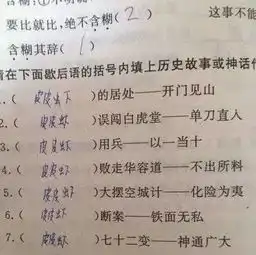 含糊:①不明确
要比就比,绝不含糊(2) 这事不能
含糊其辞(1)
请在下面歇后语的括号内填上历史故事或神话
1.(皮皮虾)的居处——开门见山
2.(皮皮虾)误闯白虎堂——单刀直入
3.(皮皮虾)用兵——以一当十
4.(皮皮虾)败走华容道——不出所料
5.(皮皮虾)大摆空城计——化险为夷
6.(皮皮虾)断案——铁面无私
7.(皮皮虾)七十二变——神通广大